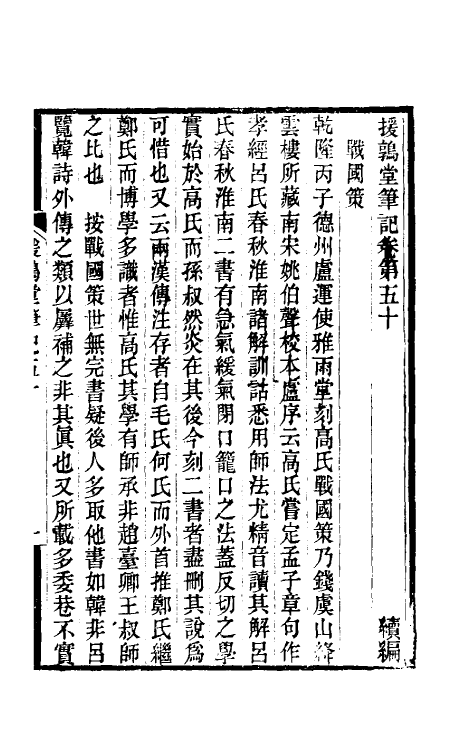 援鶉堂筆記卷第五十 續編
戰國策
乾隆丙子德州盧運使雅雨堂刻高氏戰國策乃錢虞山絳
雲樓所藏南宋姚伯聲校本盧序云高氏嘗定孟子章句作
孝經呂氏春秋淮南諸解訓詁悉用師法尤精音讀其解呂
氏春秋淮南二書有急氣緩氣閉口籠口之法蓋反切之學
實始於高氏而孫叔然炎在其後今刻二書者盡刪其說爲
可惜也又云兩漢傳注存者自毛氏何氏而外首推鄭氏繼
鄭氏而博學多識者惟高氏其學有師承非趙臺卿王叔師
之比也 按戰國策世無完書疑後人多取他書如韓非呂
覽韓詩外傳之類以孱補之非其眞也又所載多委巷不實
援鶉堂筆記五十 一